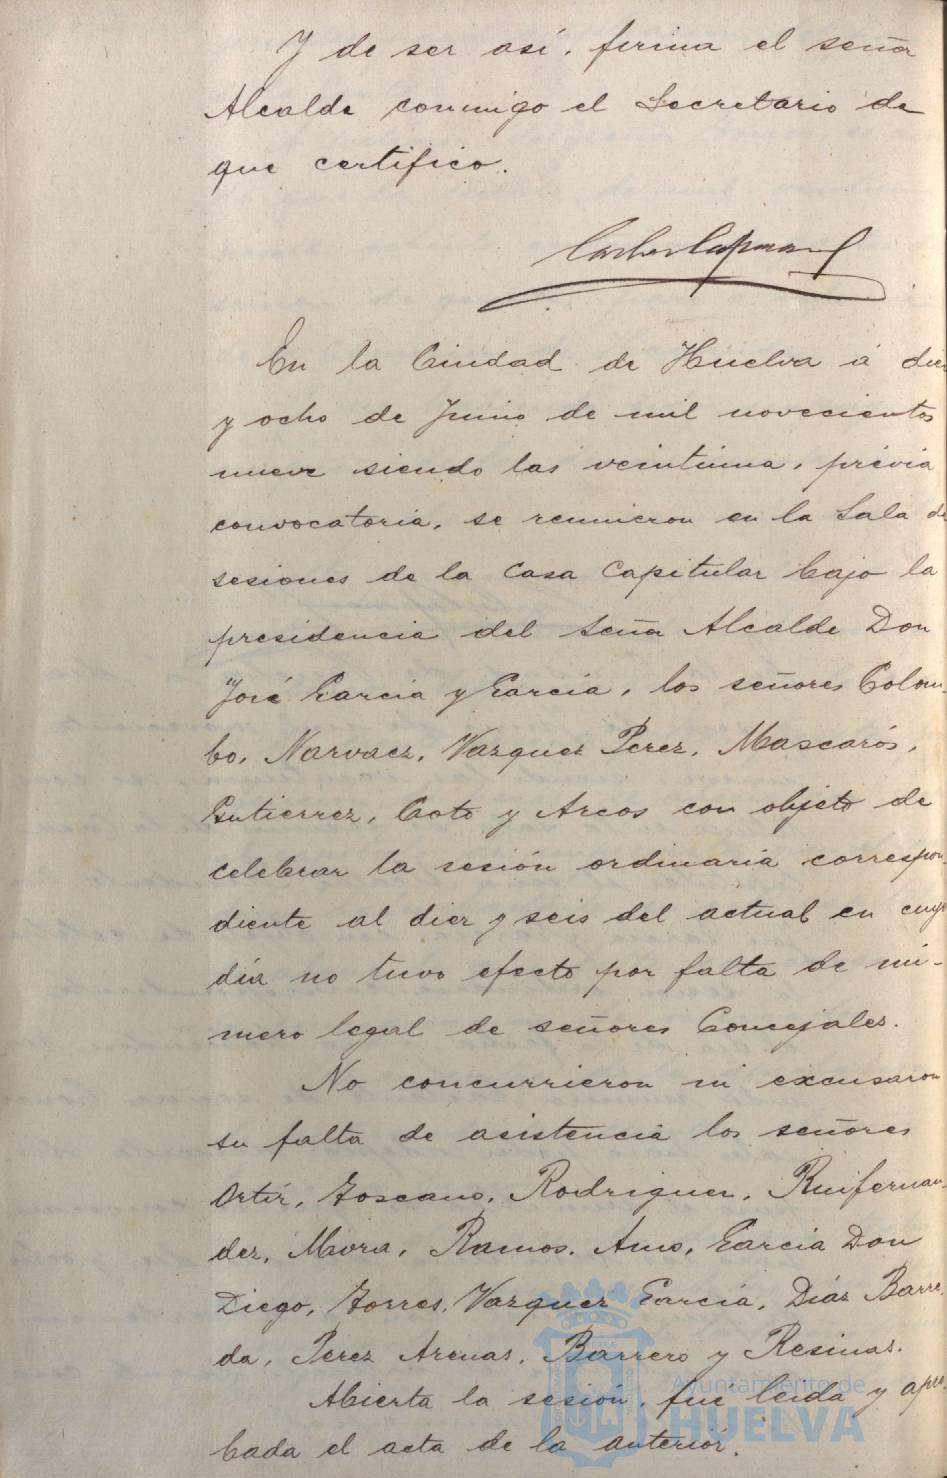 Y de ser así, firma el señor
Alcalde conmigo el Secretario de
que certifico.
En la Ciudad de Huelva á diez
y ocho de Junio de mil novecientos
nueve siendo las veintiuna, prévia
convocatoria, se reunieron en la Sala de
sesiones de la Casa Capitular bajo la
presidencia del Señor Alcalde Don
José Garcia y Garcia, los señores Colom-
bo, Narvaez, Vazquez Perez, Mascarós,
Gutierrez, Coto y Arcos con objeto de
celebrar la sesión ordinaria correspon-
diente al diez y seis del actual en cuyo
día no tuvo efecto por falta de nú-
mero legal de señores Concejales.
No concurrieron ni excusaron
su falta de asistencia los señores
Ortiz, Toscano, Rodriguez, Ruifernan-
dez, Mora, Ramos, Amo, Garcia Don
Diego, Torres, Vazquez Garcia, Díaz Barre-
da, Perez Arenas, Barrero y Resinas.
Abierta la sesión, fué leida y apro-
bada el acta de la anterior.
Ayuntamiento de
HUELVA